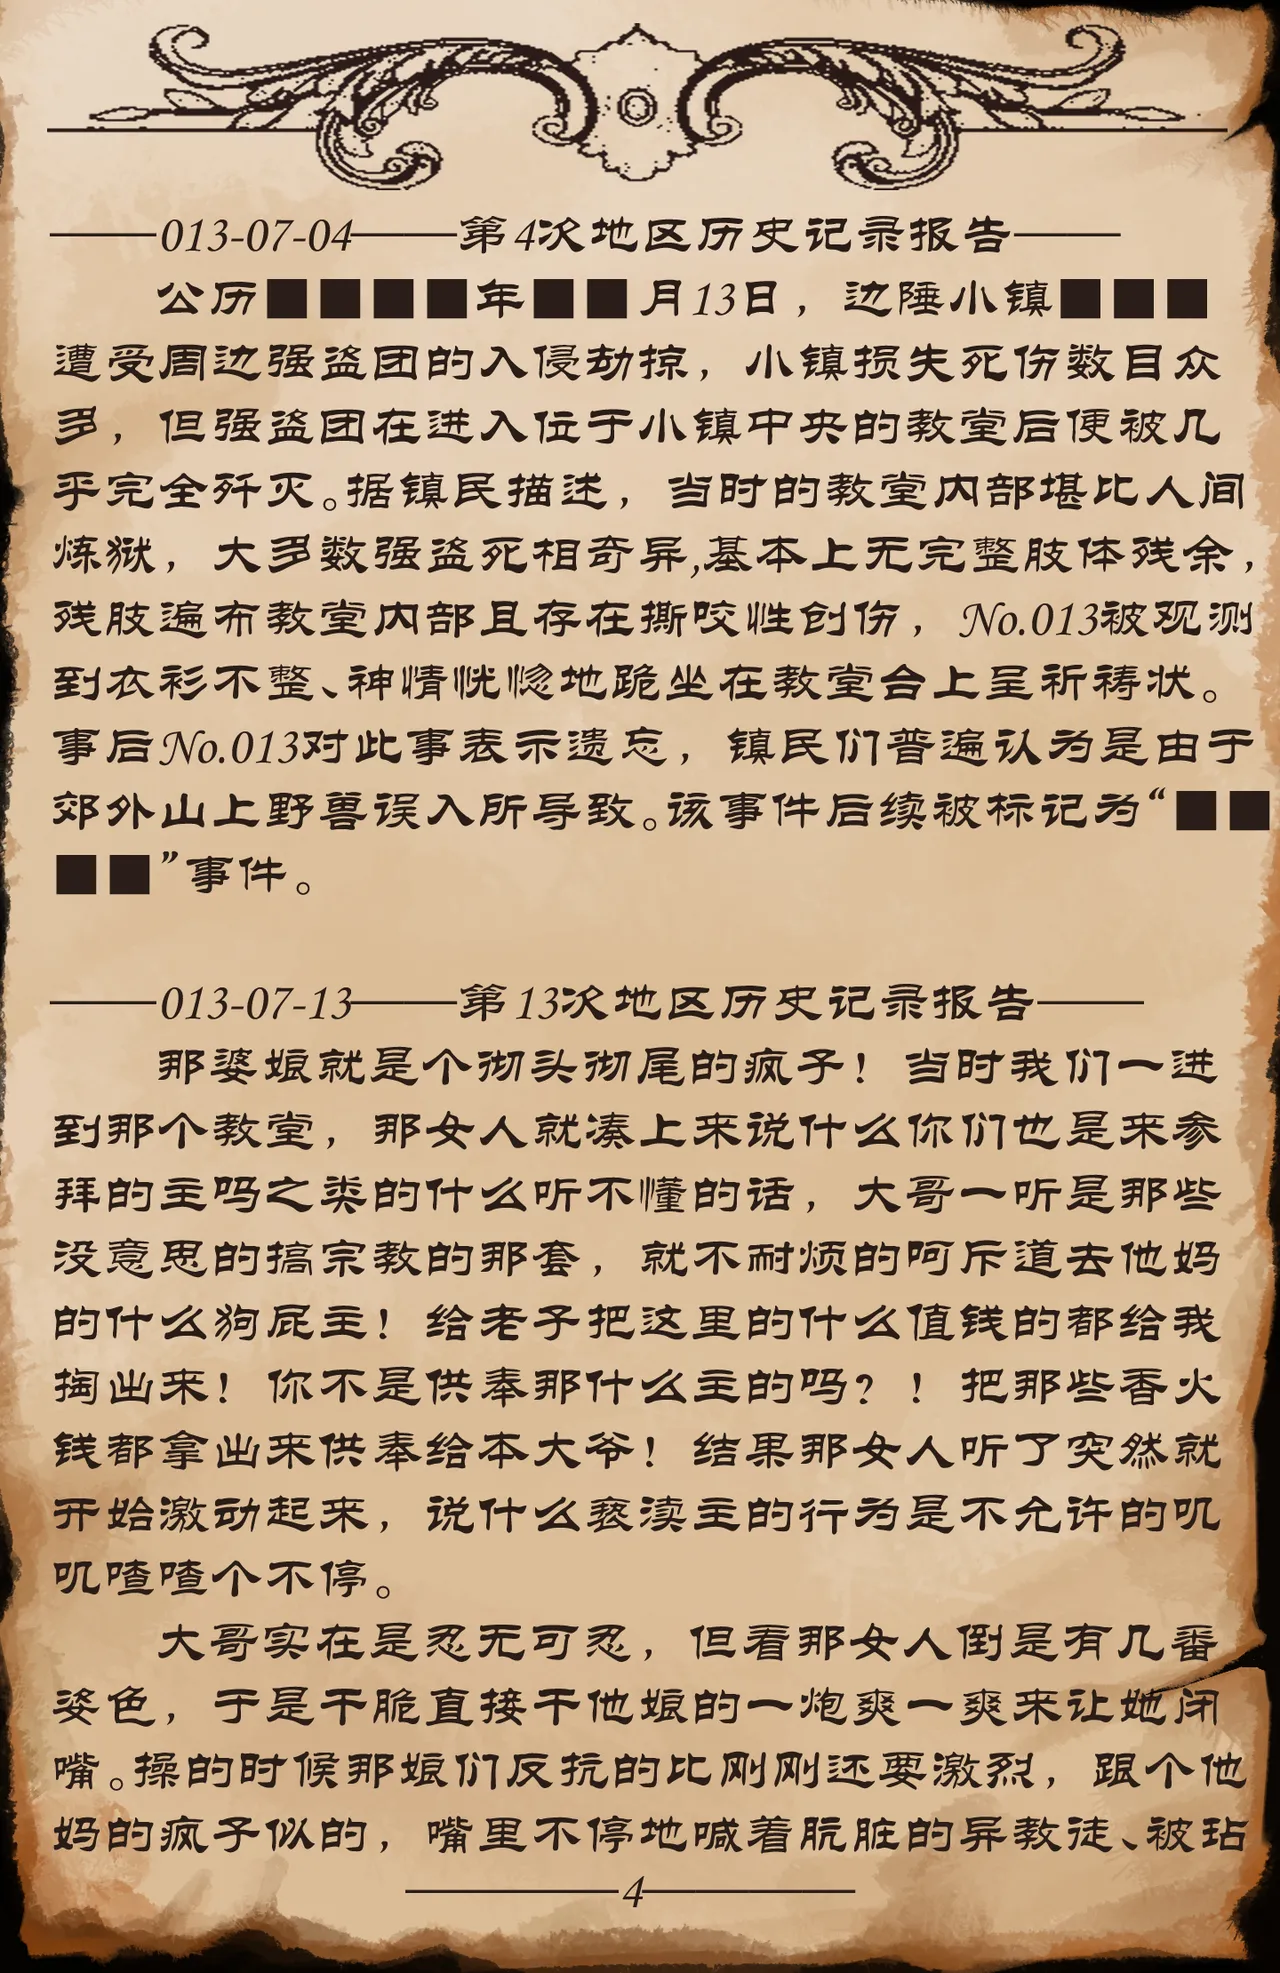 ——013-07-04——第4次地区历史记录报告——
公历■■■■年■■月13日，边陲小镇■■■
遭受周边强盗团的入侵劫掠，小镇损失死伤数目众
多，但强盗团在进入位于小镇中央的教堂后便被几
乎完全歼灭。据镇民描述，当时的教堂内部堪比人间
炼狱，大多数强盗死相奇异,基本上无完整肢体残余，
残肢遍布教堂内部且存在撕咬性创伤，No.013被观测
到衣衫不整、神情恍惚地跪坐在教堂台上呈祈祷状。
事后No.013对此事表示遗忘，镇民们普遍认为是由于
郊外山上野兽误入所导致。该事件后续被标记为“■■
■■”事件。
——013-07-13——第13次地区历史记录报告——
那婆娘就是个彻头彻尾的疯子！当时我们一进
到那个教堂，那女人就凑上来说什么你们也是来参
拜的主吗之类的什么听不懂的话，大哥一听是那些
没意思的搞宗教的那套，就不耐烦的呵斥道去他妈
的什么狗屁主！给老子把这里的什么值钱的都给我
掏出来！你不是供奉那什么主的吗？！把那些香火
钱都拿出来供奉给本大爷！结果那女人听了突然就
开始激动起来，说什么亵渎主的行为是不允许的叽
叽喳喳个不停。
大哥实在是忍无可忍，但看那女人倒是有几番
姿色，于是干脆直接干他娘的一炮爽一爽来让她闭
嘴。操的时候那娘们反抗的比刚刚还要激烈，跟个他
妈的疯子似的，嘴里不停地喊着肮脏的异教徒、被玷
——4——